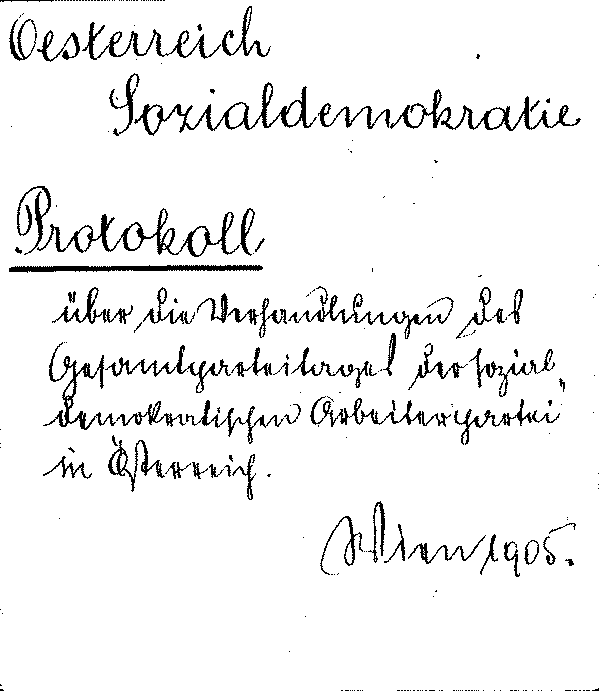 Oesterreich
Sozialdemokratie
Protokoll
über die Verhandlungen des
Gesamtparteitages der sozial„
demokratischen Arbeiterpartei
in Österreich.
Wien 1905.